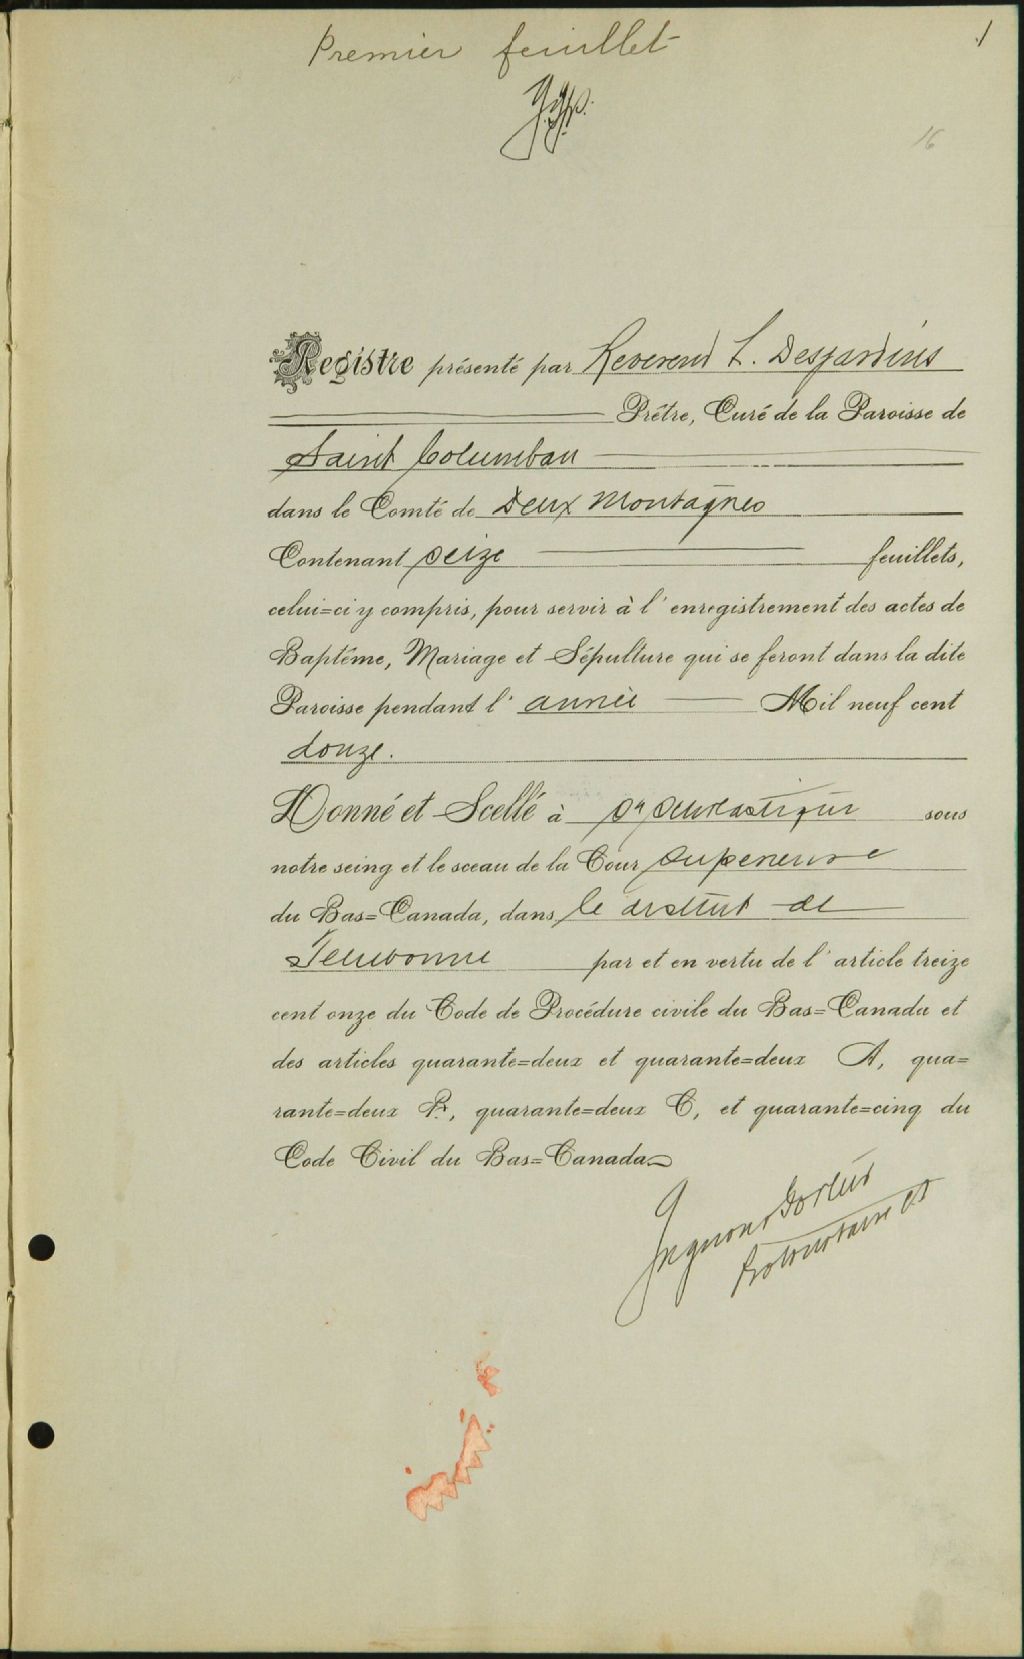 Premier feuillet
1
16
Registre présenté par Reverend L. Desjardins
Prêtre, Curé de la Paroisse de
Saint Columban
dans le Comté de Deux Montagnes
Contenant seize feuillets,
celui=ci y compris, pour servir à l'enregistrement des actes de
Baptême, Mariage et Sépulture qui se feront dans la dite
Paroisse pendant l'année Mil neuf cent
douze.
Donné et Scellé à Ste Scholastique sous
notre seing et le sceau de la Cour Superieure
du Bas=Canada, dans le district de
Terrebonne par et en vertu de l'article treize
cent onze du Code de Procédure civile du Bas=Canada et
des articles quarante=deux et quarante=deux A, qua=
rante=deux B, quarante=deux C, et quarante=cinq du
Code Civil du Bas=Canada
Grignon &
Protonotaire CS